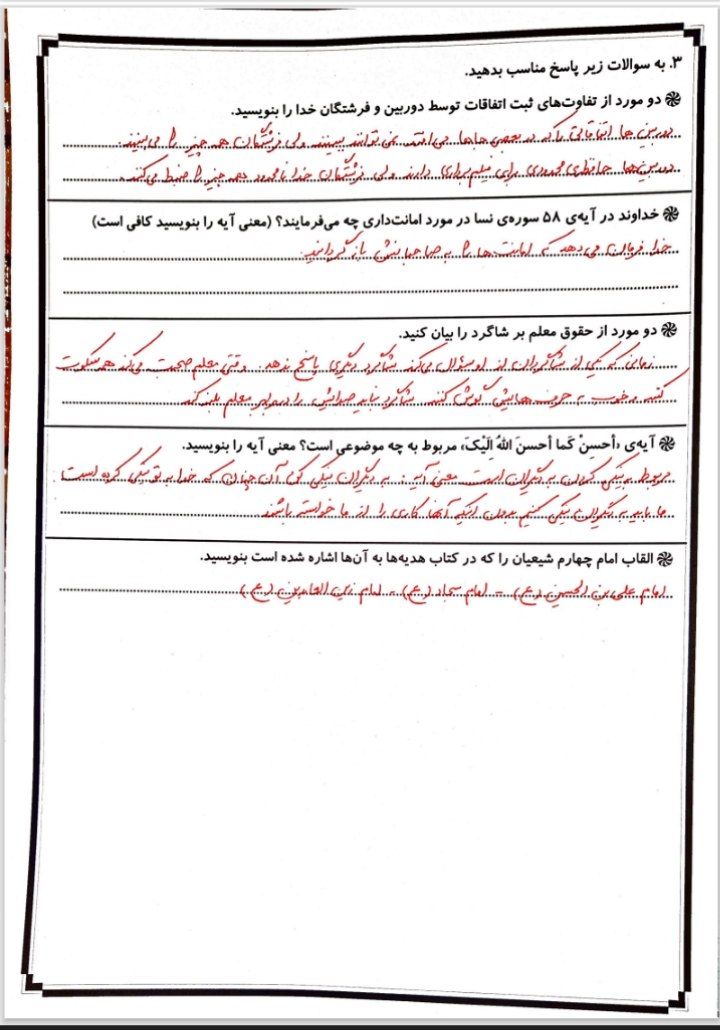 ۳. به سوالات زیر پاسخ مناسب بدهید.
دو مورد از تفاوت‌های ثبت اتفاقات توسط دوربین و فرشتگان خدا را بنویسید.
دوربین ها اتفاقاتی را که در بعضی جاها می افتد نمی توانند ببینند ولی فرشتگان همه چیز را می بینند.
دوربین‌ها حافظه‌ی محدودی برای فیلم‌برداری دارند ولی فرشتگان خدا نامحدود همه چیز را ضبط می‌کند.
خداوند در آیه‌ی ۵۸ سوره‌ی نسا در مورد امانت‌داری چه می‌فرمایند؟ (معنی آیه را بنویسید کافی است)
خدا فرمان می دهد که امانت ها را به صاحبانش بازگردانید.
دو مورد از حقوق معلم بر شاگرد را بیان کنید.
زمانی که یکی از شاگردان از او سئوال می‌کند شاگرد دیگری پاسخ ندهد. وقتی معلم صحبت می‌کند همه سکوت
کنند و خوب به حرف هایش گوش کنند. شاگرد نباید صدایش را در برابر معلم بلند کند
آیه‌ی «أحسِنْ کَما أحسنَ اللهُ اِلَیْکَ» مربوط به چه موضوعی است؟ معنی آیه را بنویسید.
مربوط به نیکی کردن به دیگران است معنی آیه: به دیگران نیکی کن آن چنان که خدا به تو نیکی کرده است.
ما باید به دیگران نیکی کنیم بدون اینکه آنها کاری را از ما خواسته باشند
القاب امام چهارم شیعیان را که در کتاب هدیه‌ها به آن‌ها اشاره شده است بنویسید.
امام علی بن الحسین (ع) - امام سجاد (ع) - امام زین العابدین (ع)